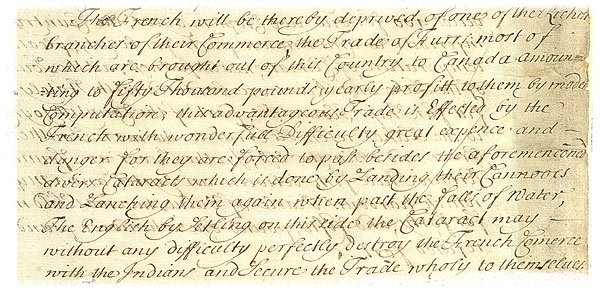 The French will be thereby deprived of one of the richest
branches of their Commerce, the Trade of Furrs most of
which are brought out of this Country to Canada amoun-
ting to fifty Thousand pounds yearly profitt to them by modest
Computation; this advantageous Trade is Effected by the
French with wonderfull Difficulty great expence and —
danger for they are forced to pass besides the aforementioned
divers Cataracts which is done by Landing their Cannooes
and Lanching them again when past the falls of Water,
The English by Setling on this side the Cataract may —
without any difficulty perfectly destroy the French Comerce
with the Indians and Secure the Trade wholy to themselves.